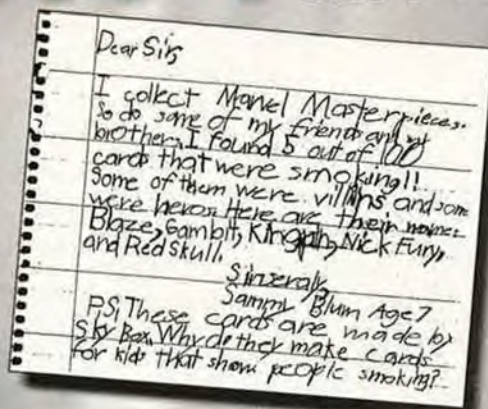 Dear Sir,
I collect Marvel Masterpieces.
So do some of my friends and my
brother. I found 5 out of 100
cards that were smoking!!
Some of them were villins and some
were heros. Here are their names
Blaze, Gambit, Kingpin, Nick Fury,
and Red Skull.
Sinseraly,
Sammy Blum Age 7
P.S. These cards are made by
Sky Box. Why do they make cards
for kids that show people smoking?